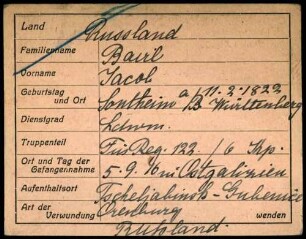 Land Russland
Familienname Bairl
Vorname Jacob
Geburtstag a/ 11.2.1822
und Ort Sontheim Württemberg
Dienstgrad Lstwm.
Truppenteil Füs. Reg. 122. / 6 Kp.
Ort und Tag der
Gefangennahme 5. 9. 16 in Ostgalizien
Aufenthaltsort Tscheljabinsk - Gubernie
Art der Orenburg
Verwundung Russland. wenden